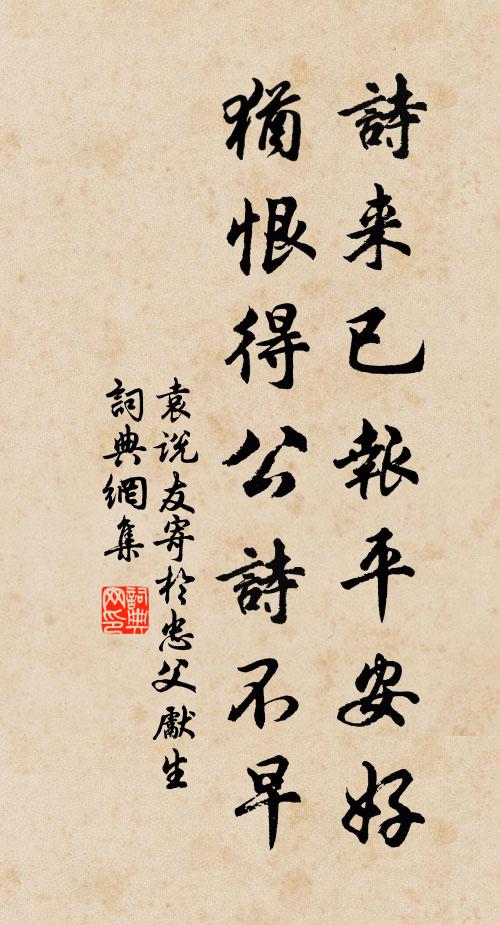 詩来已報平安好
猶恨得公詩不早
袁説友寄於忠父獻生
詞典網集
詞典网印